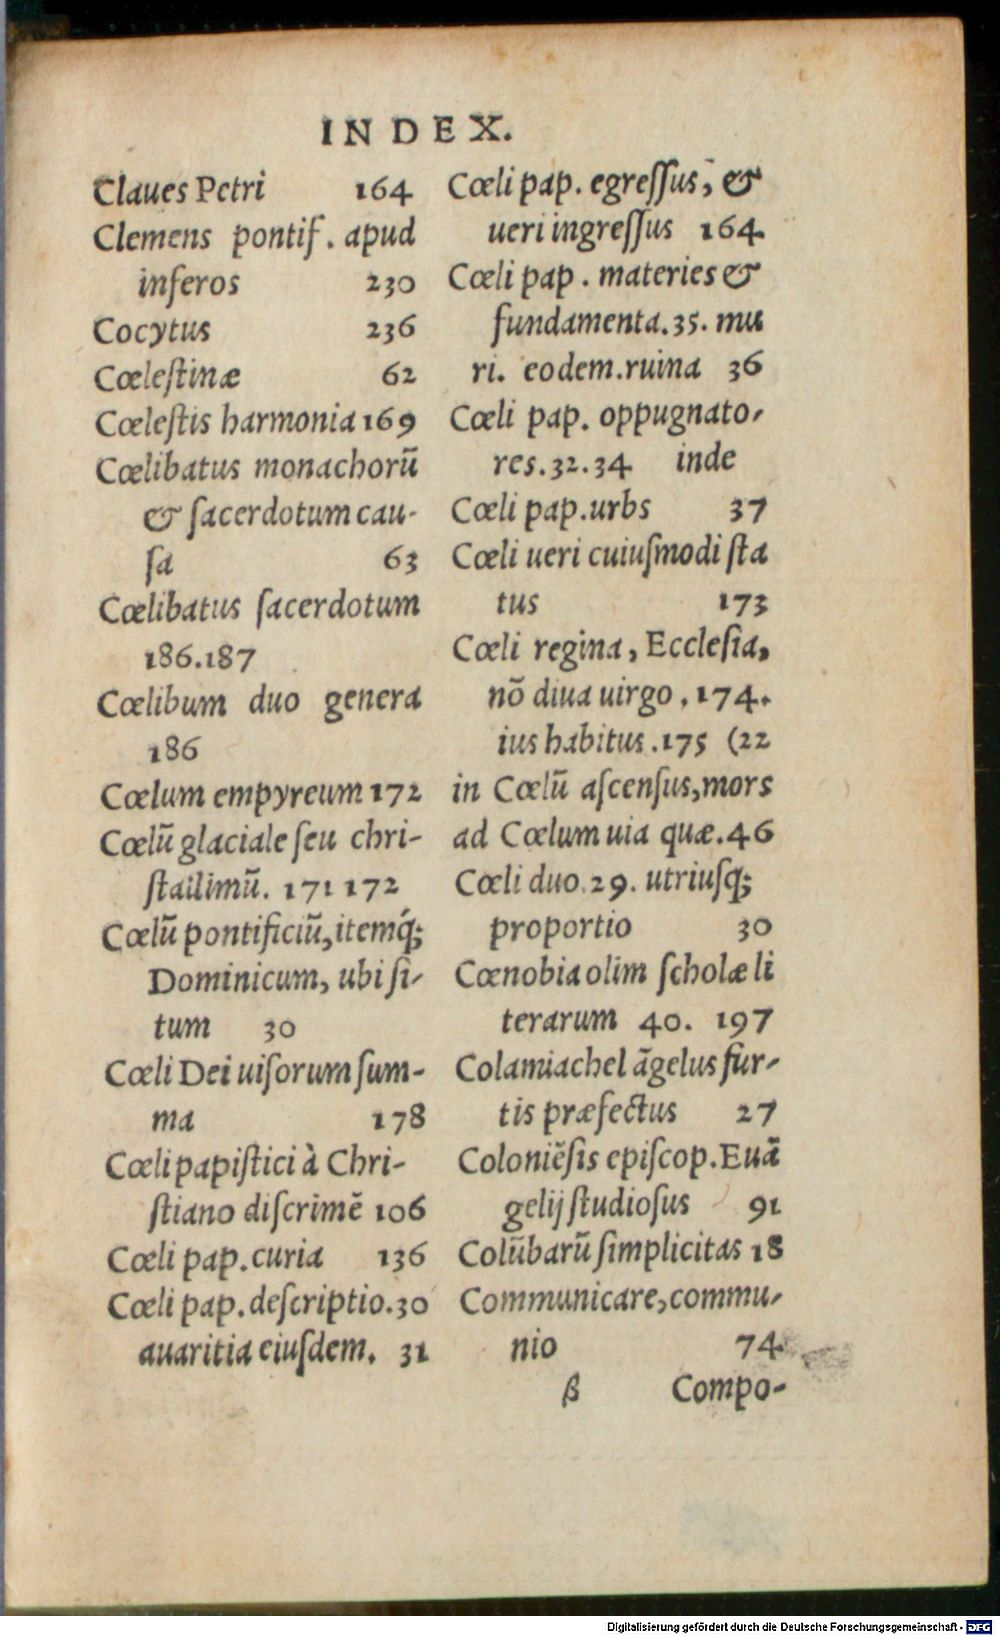 INDEX.
Claues Petri 164
Clemens pontif. apud
inferos 230
Cocytus 236
Cœleſtinæ 62
Cœleſtis harmonia 169
Cœlibatus monachorũ
& ſacerdotum cau-
ſa 63
Cœlibatus ſacerdotum
186.187
Cœlibum duo genera
186
Cœlum empyreum 172
Cœlũ glaciale ſeu chri-
ſtallimũ. 171 172
Cœlũ pontificiũ, itemq́;
Dominicum, ubi ſi-
tum 30
Cœli Dei uiſorum ſum-
ma 178
Cœli papiſtici à Chri-
ſtiano diſcrimẽ 106
Cœli pap. curia 136
Cœli pap. deſcriptio. 30
auaritia eiuſdem. 31
Cœli pap. egreſſus, &
ueri ingreſſus 164
Cœli pap. materies &
fundamenta. 35. mu
ri. eodem. ruina 36
Cœli pap. oppugnato-
res. 32. 34 inde
Cœli pap. urbs 37
Cœli ueri cuiuſmodi ſta
tus 173
Cœli regina, Eccleſia,
nõ diua uirgo. 174.
ius habitus. 175 (22
in Cœlũ aſcenſus, mors
ad Cœlum uia quæ. 46
Cœli duo. 29. utriuſq;
proportio 30
Cœnobia olim ſcholæ li
terarum 40. 197
Colamiachel ãgelus fur-
tis præfectus 27
Coloniẽſis epiſcop. Euã
gelij ſtudioſus 91
Colũbarũ ſimplicitas 18
Communicare, commu-
nio 74
β Compo-
Digitalisierung gefördert durch die Deutsche Forschungsgemeinschaft - DFG